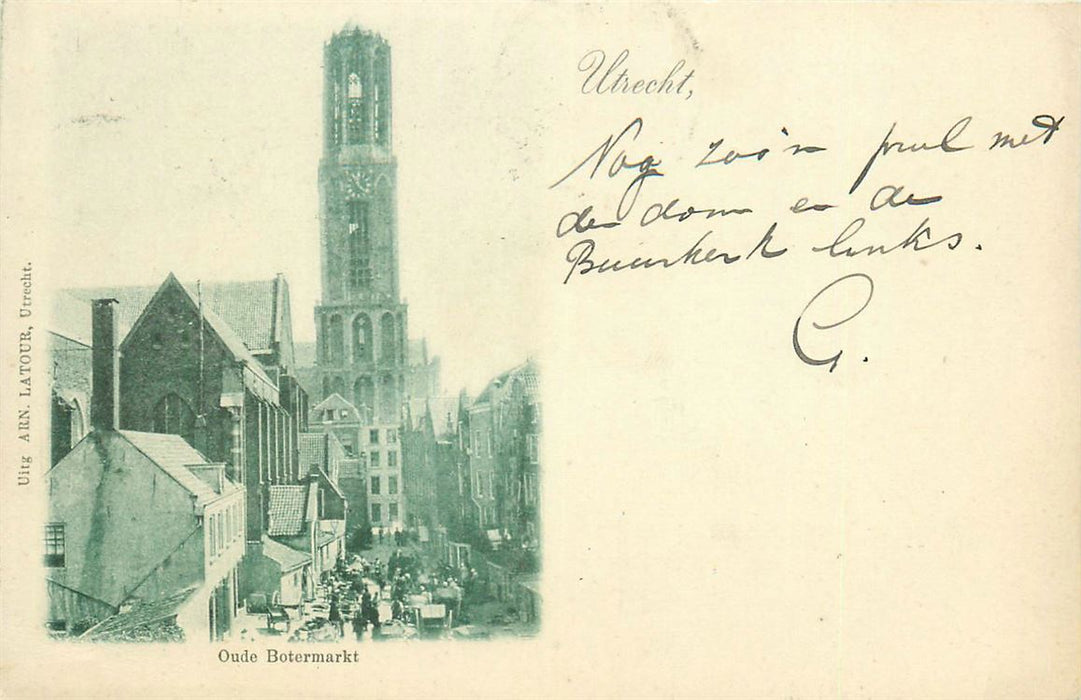 Utrecht,
Nog zoo'n prul met
den dom en de
Buurkerk links.
G.
Uitg ARN. LATOUR, Utrecht.
Oude Botermarkt